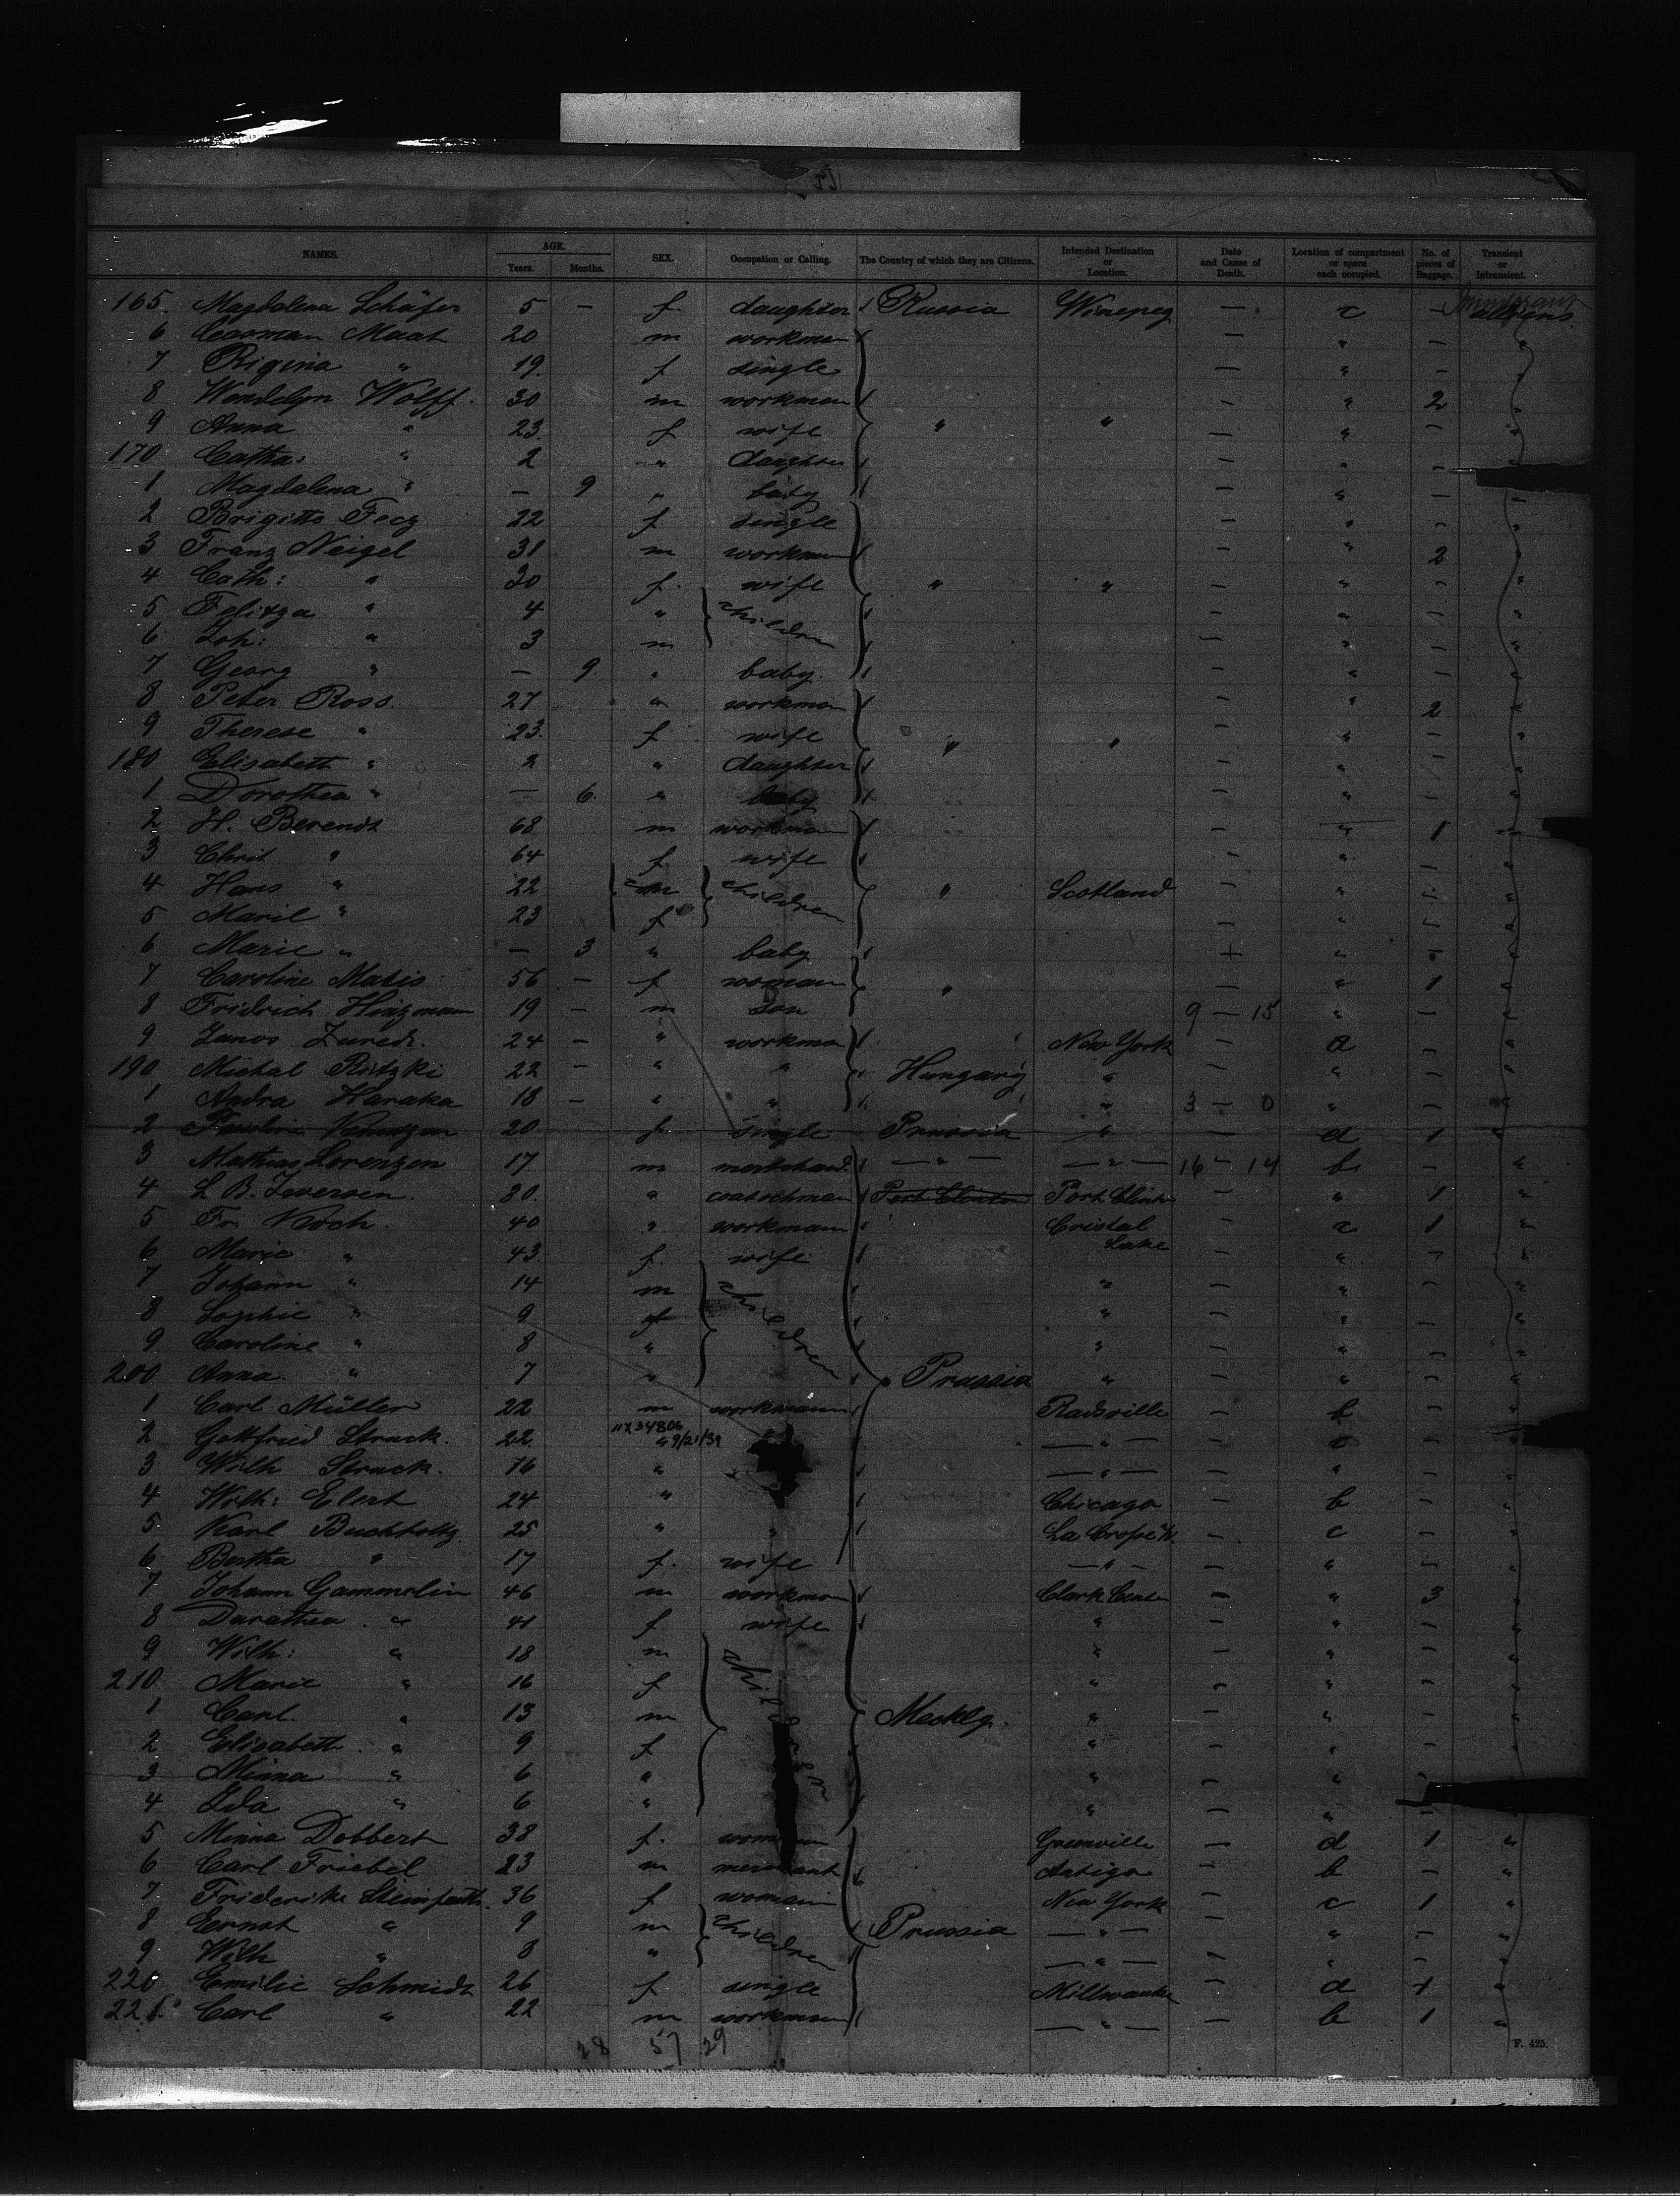 NAMES. AGE. Years. Months. SEX. Occupation or Calling. The Country of which they are Citizens. Intended Destination or Location. Date and Cause of Death. Location of compartment or space each occupied. No. of pieces of Baggage. Transient or Intransient.
165. Magdalena Schäfer 5 — f. daughter Russia Winepeg — c —
6 Casman Maat 20 m workman — " —
7 Rigina " 19. f single — " — "
8 Wendelyn Wolff. 30 m workman — " 2 "
9 Anna " 23. f wife " " — " — "
170 Catha: " 2 " daughter — " —
1 Magdalena " — 9 " baby — " — "
2 Brigitta Fecz 22 f single — " — "
3 Franz Neigel 31 m workman — " 2 "
4 Cath: " 30 f. wife " " — " — "
5 Felitza " 4 " children — " — "
6 Joh: " 3 m — " — "
7 Georg " — 9 " baby. — " — "
8 Peter Ross. 27 " workman — " 2 "
9 Therese " 23. f wife " " — " — "
180 Elisabeth " 2 " daughter — " — "
1 Dorothea " — 6. " baby — " — "
2 H. Berendt 68 m workman — " 1 "
3 Christ " 64 f wife — " — "
4 Hans " 22 m children " Scotland — " — "
5 Maril " 23 f — " — "
6 Marie " — 3 " baby + " — "
7 Caroline Matis 56 — f woman " — " 1 "
8 Fridrich Hinzmann 19 — m son 9 — 15 " —
9 Janos Zuredi. 24 — " workman New York — a — "
190 Michal Ritzki 22 — " " Hungary " — " — "
1 Andra Haraka 18 — " " " 3 — 0 " — "
2 Pauline 20 f single Prussia " — d 1 "
3 Mathias Lorenzen 17 m mertchand. — " — — " — 16 — 14 b — "
4 L. B. Iwersen. 30. " coatschman Port Clinton Port Clinton — " 1 "
5 Fr. Koch. 40 " workmann Cristal Lake — c 1 "
6 Marie " 43. f. wife — " — "
7 Johann " 14 m children " — " — "
8 Sophie " 9 f " — " — "
9 Caroline " 8 " " — " — "
200 Anna. " 7 " Prussia " — " — "
1 Carl Müller 22 m workmann Radsville — b — "
11X34806
2 Gottfried Struck. 22. " 9/21/39 — " — — c — "
3 Wilh Struck. 16 " — " — — " — "
4 Wilh: Elert 24 " Chicago — b — "
5 Karl Buchholtz 25 " " La Crosse W. — c — "
6 Bertha " 17 f. wife — " — — " — "
7 Johann Gammelin 46 m workman Clark Center — " 3 "
8 Darathea " 41 f wife " — " — "
9 Wilh: " 18 m children " — " — "
210 Marie " 16 f " — " — "
1 Carl. " 13 m Mecklg. " — " — "
2 Elisabeth " 9 f " — " — "
3 Minna " 6 " " — " — "
4 Ida " 6 " " — " — "
5 Minna Dobbert 38 f. woman Greenville — d 1 "
6 Carl Friebel 23 m merchant Antigo — b — "
7 Friderike 36 f woman New York — c 1 "
8 Ernst " 9 m children Prussia — " — — " — "
9 Wilh " 8 " — " — — " — "
220 Emilie Schmidt 26 f single Millwauke — d 1 "
221. Carl " 22 m workman — " — — b 1 "
28 57 29
F. 425.